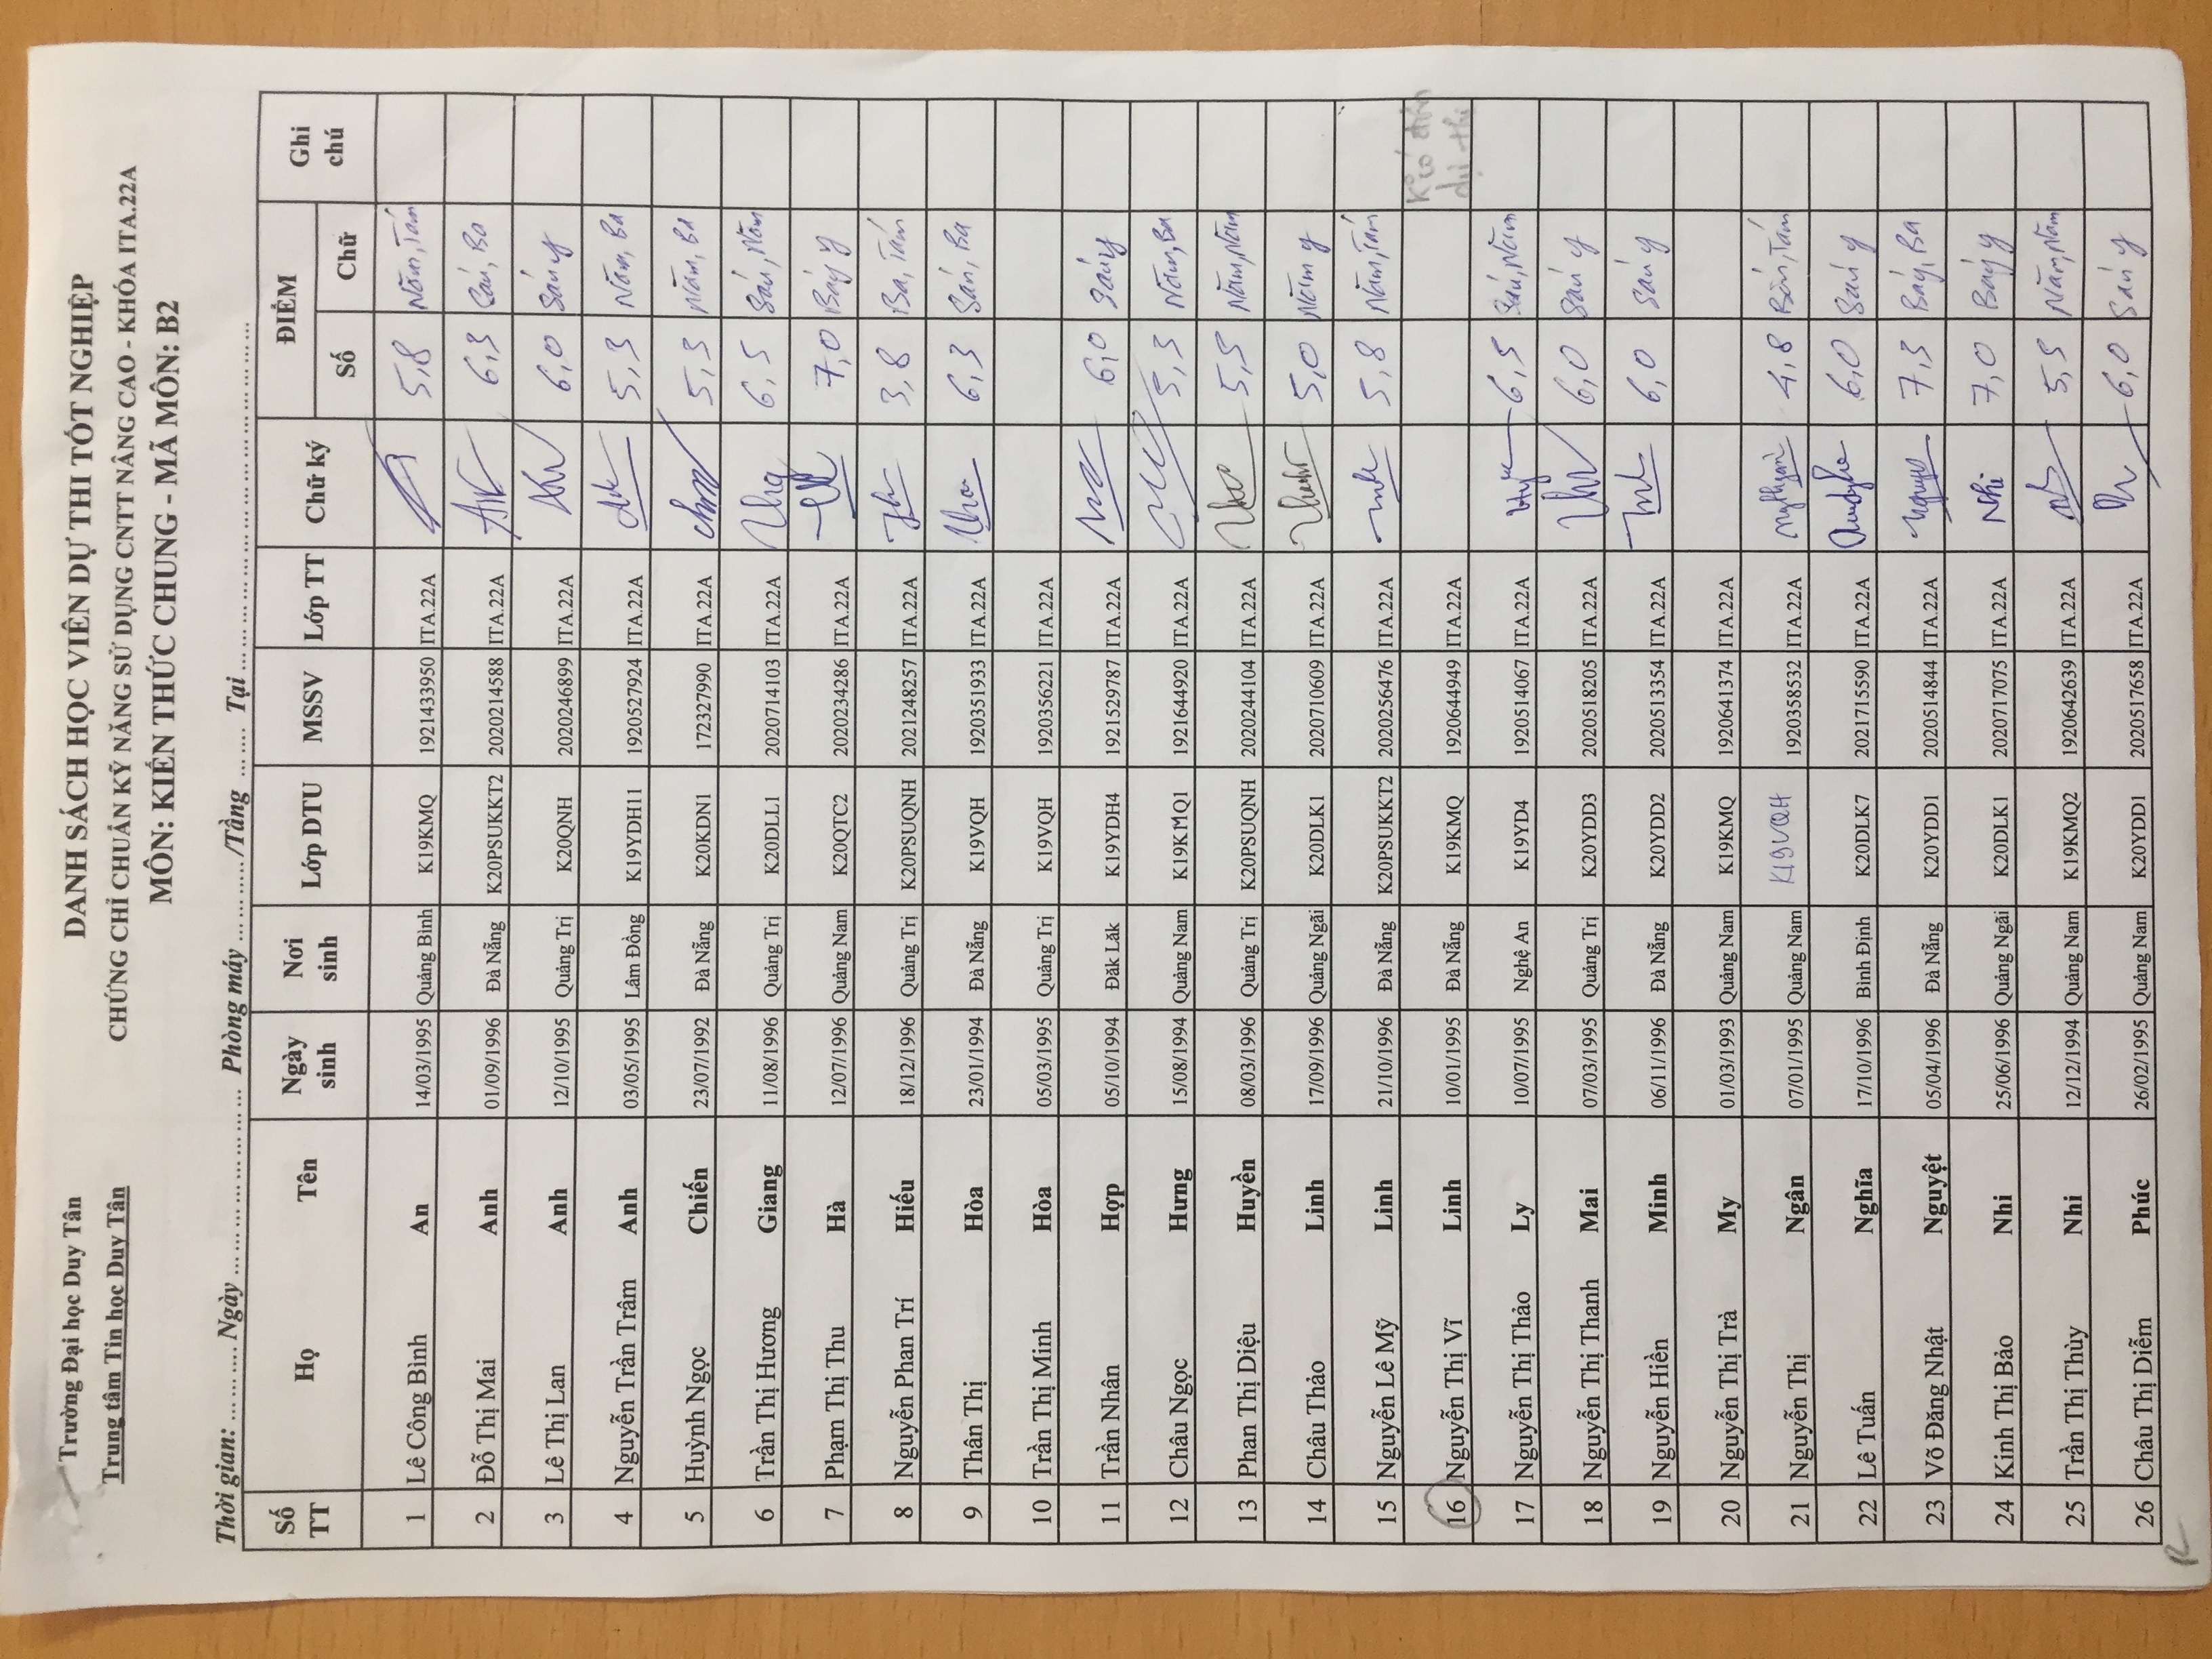 Trường Đại học Duy Tân
Trung tâm Tin học Duy Tân
DANH SÁCH HỌC VIÊN DỰ THI TỐT NGHIỆP
CHỨNG CHỈ CHUẨN KỸ NĂNG SỬ DỤNG CNTT NÂNG CAO - KHÓA ITA.22A
MÔN: KIẾN THỨC CHUNG - MÃ MÔN: B2
Thời gian: ... ... .... Ngày ... ... ... ... ... ... Phòng máy ... ... ....../Tầng ... .... Tại ... ... ... ... ... ...
Số TT Họ Tên Ngày sinh Nơi sinh Lớp DTU MSSV Lớp TT Chữ ký ĐIỂM Ghi chú
Số Chữ
1 Lê Công Bình An 14/03/1995 Quảng Bình K19KMQ 1921433950 ITA.22A 5,8 Năm, Tám
2 Đỗ Thị Mai Anh 01/09/1996 Đà Nẵng K20PSUKKT2 2020214588 ITA.22A 6,3 Sáu, Ba
3 Lê Thị Lan Anh 12/10/1995 Quảng Trị K20QNH 2020246899 ITA.22A 6,0 Sáu y
4 Nguyễn Trần Trâm Anh 03/05/1995 Lâm Đồng K19YDH11 1920527924 ITA.22A 5,3 Năm, Ba
5 Huỳnh Ngọc Chiến 23/07/1992 Đà Nẵng K20KDN1 172327990 ITA.22A 5,3 Năm, Ba
6 Trần Thị Hương Giang 11/08/1996 Quảng Trị K20DLL1 2020714103 ITA.22A 6,5 Sáu, Năm
7 Phạm Thị Thu Hà 12/07/1996 Quảng Nam K20QTC2 2020234286 ITA.22A 7,0 Bảy y
8 Nguyễn Phan Trí Hiếu 18/12/1996 Quảng Trị K20PSUQNH 2021248257 ITA.22A 3,8 Ba, Tám
9 Thân Thị Hòa 23/01/1994 Đà Nẵng K19VQH 1920351933 ITA.22A 6,3 Sáu, Ba
10 Trần Thị Minh Hòa 05/03/1995 Quảng Trị K19VQH 1920356221 ITA.22A
11 Trần Nhân Hợp 05/10/1994 Đắk Lăk K19YDH4 1921529787 ITA.22A 6,0 Sáu y
12 Châu Ngọc Hưng 15/08/1994 Quảng Nam K19KMQ1 1921644920 ITA.22A 5,3 Năm, Ba
13 Phan Thị Diệu Huyền 08/03/1996 Quảng Trị K20PSUQNH 2020244104 ITA.22A 5,5 Năm, Năm
14 Châu Thảo Linh 17/09/1996 Quảng Ngãi K20DLK1 2020710609 ITA.22A 5,0 Năm y
15 Nguyễn Lê Mỹ Linh 21/10/1996 Đà Nẵng K20PSUKKT2 2020256476 ITA.22A 5,8 Năm, Tám
16 Nguyễn Thị Vĩ Linh 10/01/1995 Đà Nẵng K19KMQ 1920644949 ITA.22A K° có đơn dự thi
17 Nguyễn Thị Thảo Ly 10/07/1995 Nghệ An K19YD4 1920514067 ITA.22A 6,5 Sáu, Năm
18 Nguyễn Thị Thanh Mai 07/03/1995 Quảng Trị K20YDD3 2020518205 ITA.22A 6,0 Sáu y
19 Nguyễn Hiền Minh 06/11/1996 Đà Nẵng K20YDD2 2020513354 ITA.22A 6,0 Sáu y
20 Nguyễn Thị Trà My 01/03/1993 Quảng Nam K19KMQ 1920641374 ITA.22A
21 Nguyễn Thị Ngân 07/01/1995 Quảng Nam K19VQH 1920358532 ITA.22A 4,8 Bốn, Tám
22 Lê Tuấn Nghĩa 17/10/1996 Bình Định K20DLK7 2021715590 ITA.22A 6,0 Sáu y
23 Võ Đăng Nhật Nguyệt 05/04/1996 Đà Nẵng K20YDD1 2020514844 ITA.22A Nguyệt 7,3 Bảy, Ba
24 Kinh Thị Bảo Nhi 25/06/1996 Quảng Ngãi K20DLK1 2020717075 ITA.22A Nhi 7,0 Bảy y
25 Trần Thị Thùy Nhi 12/12/1994 Quảng Nam K19KMQ2 1920642639 ITA.22A 5,5 Năm, Năm
26 Châu Thị Diễm Phúc 26/02/1995 Quảng Nam K20YDD1 2020517658 ITA.22A 6,0 Sáu y